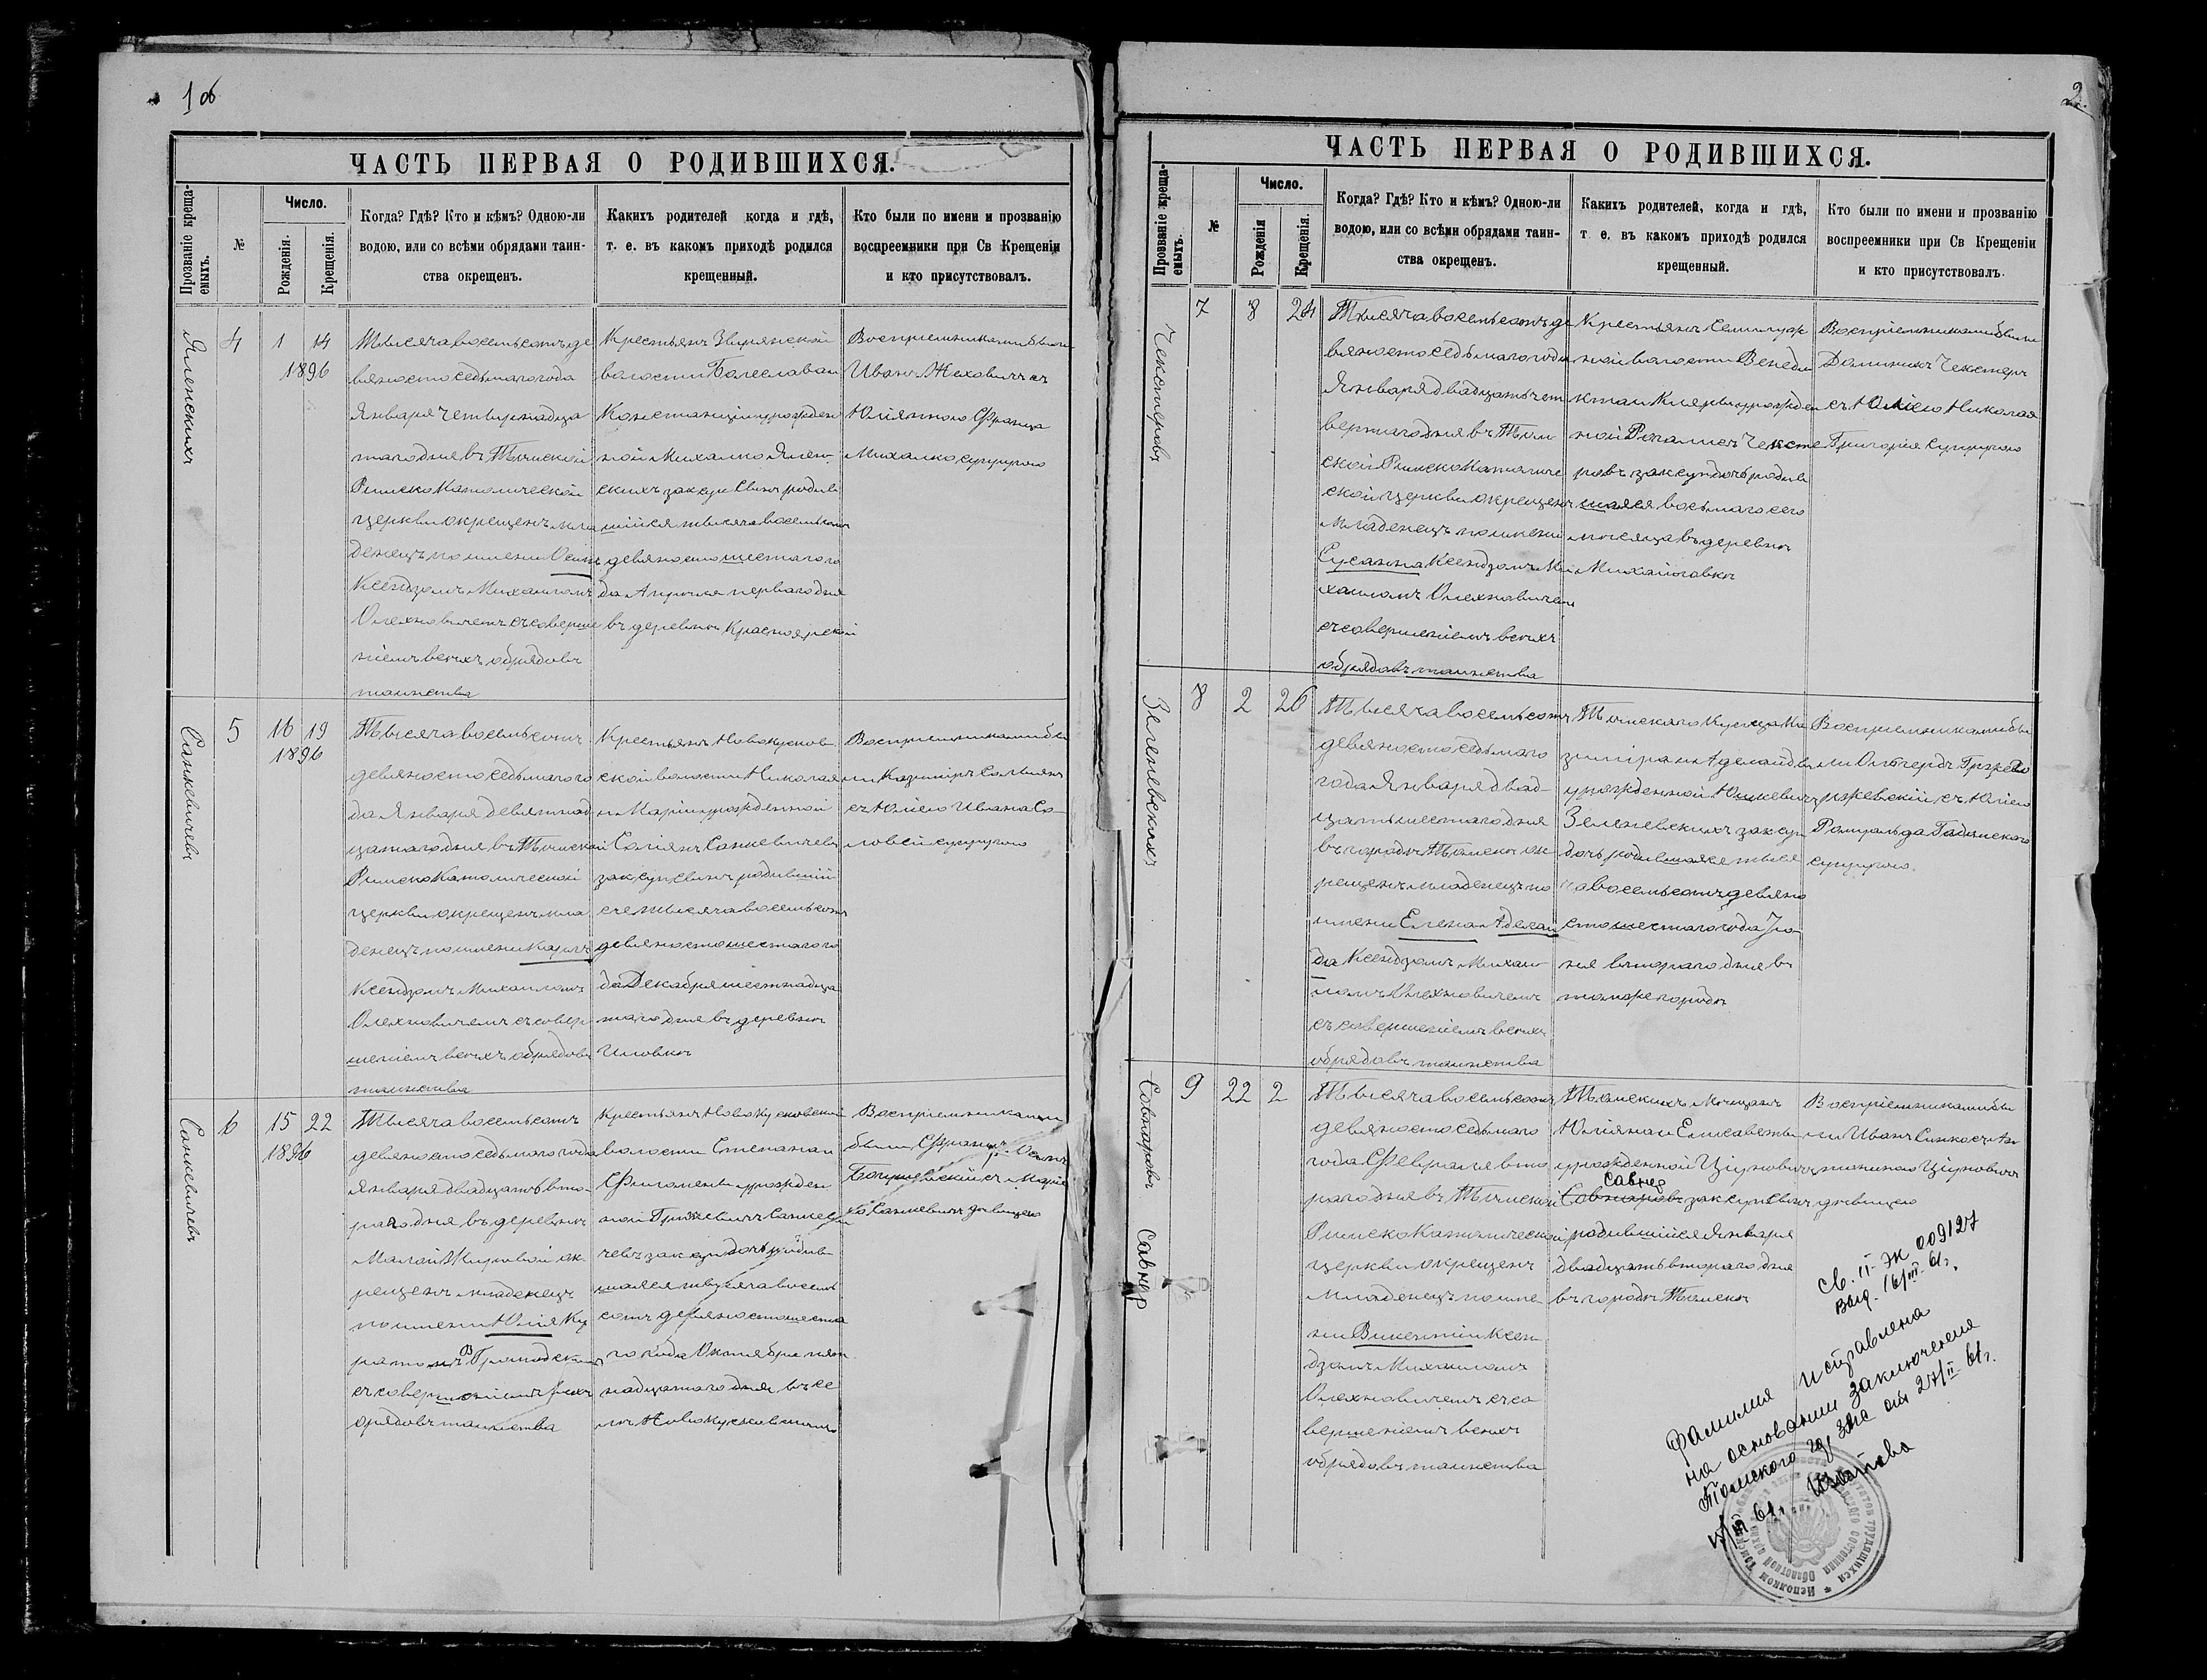 1 об
ЧАСТЬ ПЕРВАЯ О РОДИВШИХСЯ.
Прозваніе креща-
емыхъ.
№
Число.
Рожденія.
Крещенія.
Когда? Гдѣ? Кто и кѣмъ? Одною-ли
водою, или со всѣми обрядами таин-
ства окрещенъ.
Какихъ родителей когда и гдѣ,
т. е. въ какомъ приходѣ родился
крещенный.
Кто были по имени и прозванію
воспреемники при Св Крещеніи
и кто присутствовалъ.
4
1 14
1896
Тысяча восемьсотъ де
вяностоседьмаго года
Января Четырнадца
таго дня въ Томской
Римско Католической
церкви окрещенъ мла
денецъ по имени Осипъ
Ксендзомъ Михаиломъ
Олехновичемъ съ соверше
ніемъ всѣхъ обрядовъ
таинства
Крестьянъ
волости Болеслава и
Констанціи урожден
ной Михалко
скихъ зак суп сынъ родив
шійся тысяча восемьсотъ
девяносто шестаго го
да Апрѣля перваго дня
въ деревнѣ Красноярской
Воспріемниками были
Иванъ Жаховичъ съ
Юліянною Франца
Михалко супругою
Санкевичевъ
5
16 19
1896
Тысяча восемьсотъ
девяностоседьмаго го
да Января девятнад
цатаго дня въ Томской
Римско Католической
церкви окрещенъ мла
денецъ по имени Карлъ
Ксендзомъ Михаиломъ
Олехновичемъ съ совер
шеніемъ всѣхъ обрядовъ
таинства
Крестьянъ Новокусков
ской волости Николая
и Маріи урожденной
Санкевичевъ
зак суп сынъ родившій
ся тысяча восемьсотъ
девяносто шестаго го
да Декабря шестнадца
таго дня въ деревнѣ
Иловкѣ
Воспріемниками бы
ли Казиміръ
съ Юліею Ивана Со
ловей супругою
Санкевичевъ
6
15 22
1896
Тысяча восемьсотъ
девяностоседьмаго года
Января двадцать вто
раго дня въ деревнѣ
Малой Жировой ок
рещенъ младенецъ
по имени Юлія Ку
ратомъ
съ совершеніемъ всѣхъ
орядовъ таинства
Крестьянъ Новокусковской
волости Степана и
Филомены урожден
ной Санкеви
чевъ зак суп дочь родив
шаяся тысяча восемь
сотъ девяносто шеста
го года Октября пят
надцатаго дня въ се
лѣ Новокусковскомъ
Воспріемниками
были Францъ Осипъ
съ Марі
ею Санкевичъ дѣвицею
2.
ЧАСТЬ ПЕРВАЯ О РОДИВШИХСЯ.
Прозваніе креща-
емыхъ.
№
Число.
Рожденія
Крещенія.
Когда? Гдѣ? Кто и кѣмъ? Одною-ли
водою, или со всѣми обрядами таин-
ства окрещенъ.
Какихъ родителей, когда и гдѣ,
т е. въ какомъ приходѣ родился
крещенный.
Кто были по имени и прозванію
воспреемники при Св Крещеніи
и кто присутствовалъ.
Чекстеровъ
7
8 24
Тысяча восемьсотъ де
вяностоседьмаго года
Января двадцать чет
вертаго дня въ Том
ской Римско Католиче
ской церкви окрещенъ
младенецъ по имени
Сусанна Ксендзомъ Ми
хаиломъ Олехновичемъ
съ совершеніемъ всѣхъ
обрядовъ таинства
Крестьянъ Семилуж
ной волости Венеди
кта и Клары урожден
ной Чексте
ровъ зак суп дочь родив
шаяся восьмаго сего
мѣсяца въ деревнѣ
Михайловкѣ
Воспріемниками были
Доминикъ Чекстеръ
съ Юліею Николая
Григорія супругою
Зеленевскихъ
8
2 26
Тысяча восемьсотъ
девяностоседьмаго
года Января двад
цать шестаго дня
въ городѣ Томскѣ ок
рещенъ младенецъ по
имени Елена Аделаи
да Ксендзомъ Михаи
ломъ Олехновичемъ
съ совершеніемъ всѣхъ
обрядовъ таинства
Томскаго Купца Ка
зиміра и Аделаиды
урожденной Юшкевичъ
Зеленевскихъ зак суп
дочь родившаяся тыся
ча восемьсотъ девяно
сто шестаго года Ію
ня втораго дня въ
томже городѣ
Воспріемниками бы
ли Ольгердъ Гржего
ржевскій съ Юліею
Ромуальда
супругою
Савнаровъ Савнер
9
22 2
Тысяча восемьсотъ
девяностоседьмаго
года Февраля вто
раго дня въ Томской
Римско Католической
церкви окрещенъ
младенецъ по име
ни Викентій Ксен
дзомъ Михаиломъ
Олехновичемъ съ со
вершеніемъ всѣхъ
обрядовъ таинства
Томскихъ Мѣщанъ
Юліяна и Елисаветы
урожденной Ціуновичъ
Савнер
Савнаровъ зак суп сынъ
родившійся Января
двадцать втораго дня
въ городѣ Томскѣ
Воспріемниками бы
ли Иванъ
Ціуновичъ
дѣвицею
Св. II-ЭЖ 009127
выд. 16/III-61г.
Фамилия исправлена
на основании заключения
Томского гор ЗАГС от 27/II 61г.